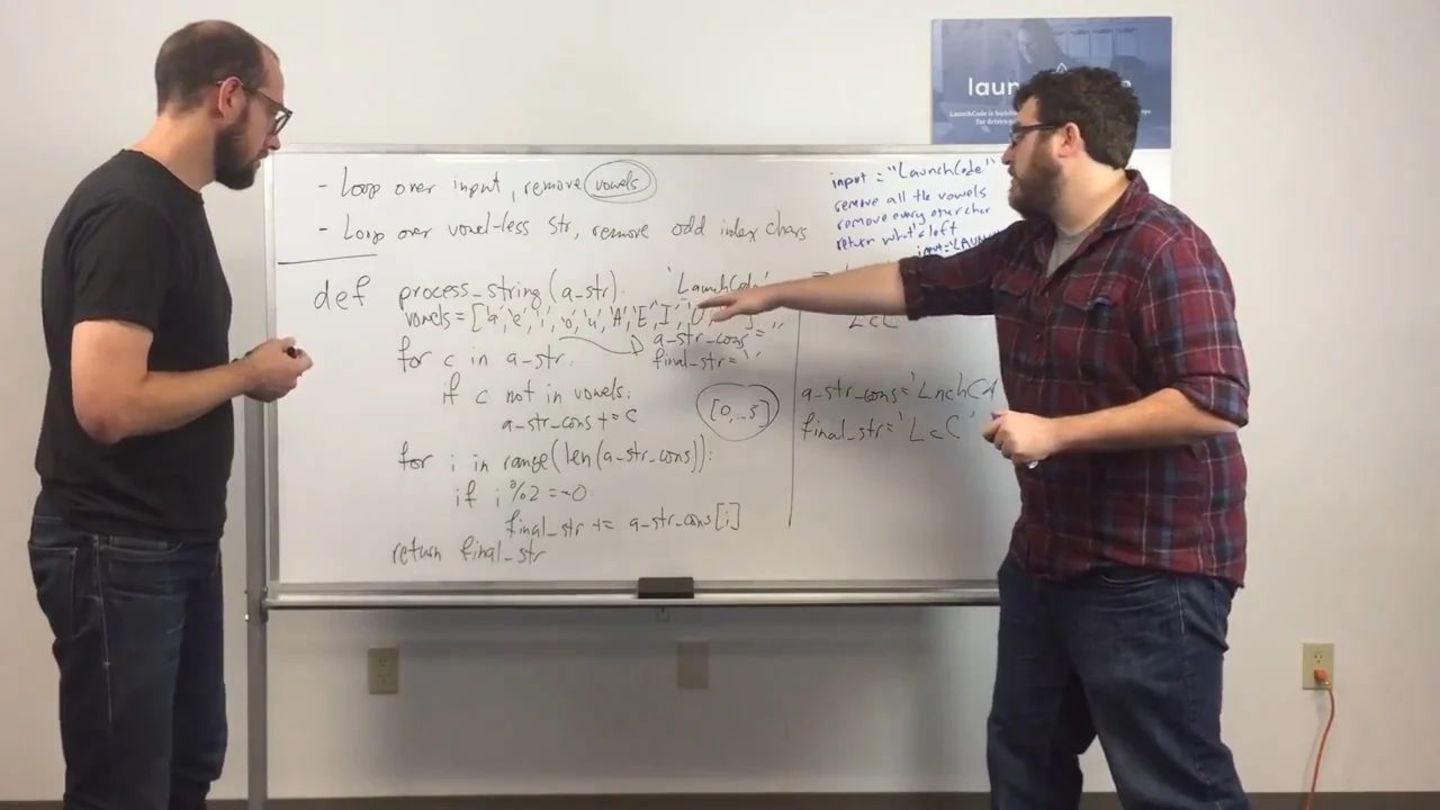 laun
LaunchCode is buildin
for driven
- Loop over input, remove vowels
- Loop over vowel-less str, remove odd index chars
input = "LaunchCode"
remove all the vowels
remove every other char
return what's left
input='LAUN
def process_string(a_str):
'LaunchCode'
vowels = ['a','e','i','o','u','A','E','I','O'
LcC
for c in a_str:
a_str_cons = ''
final_str = ''
if c not in vowels:
a_str_cons += c
[0,..5]
a_str_cons='LnchCd
final_str='LcC'
for i in range(len(a_str_cons)):
if i%2 == 0
final_str += a_str_cons[i]
return final_str